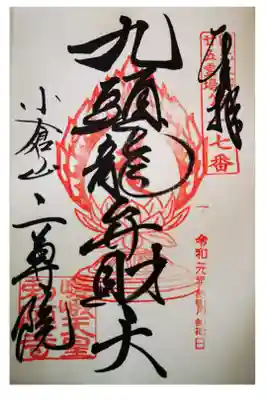 奉拝
廿五霊場
七番
令和元年
九頭龍弁財天
小倉山 二尊院